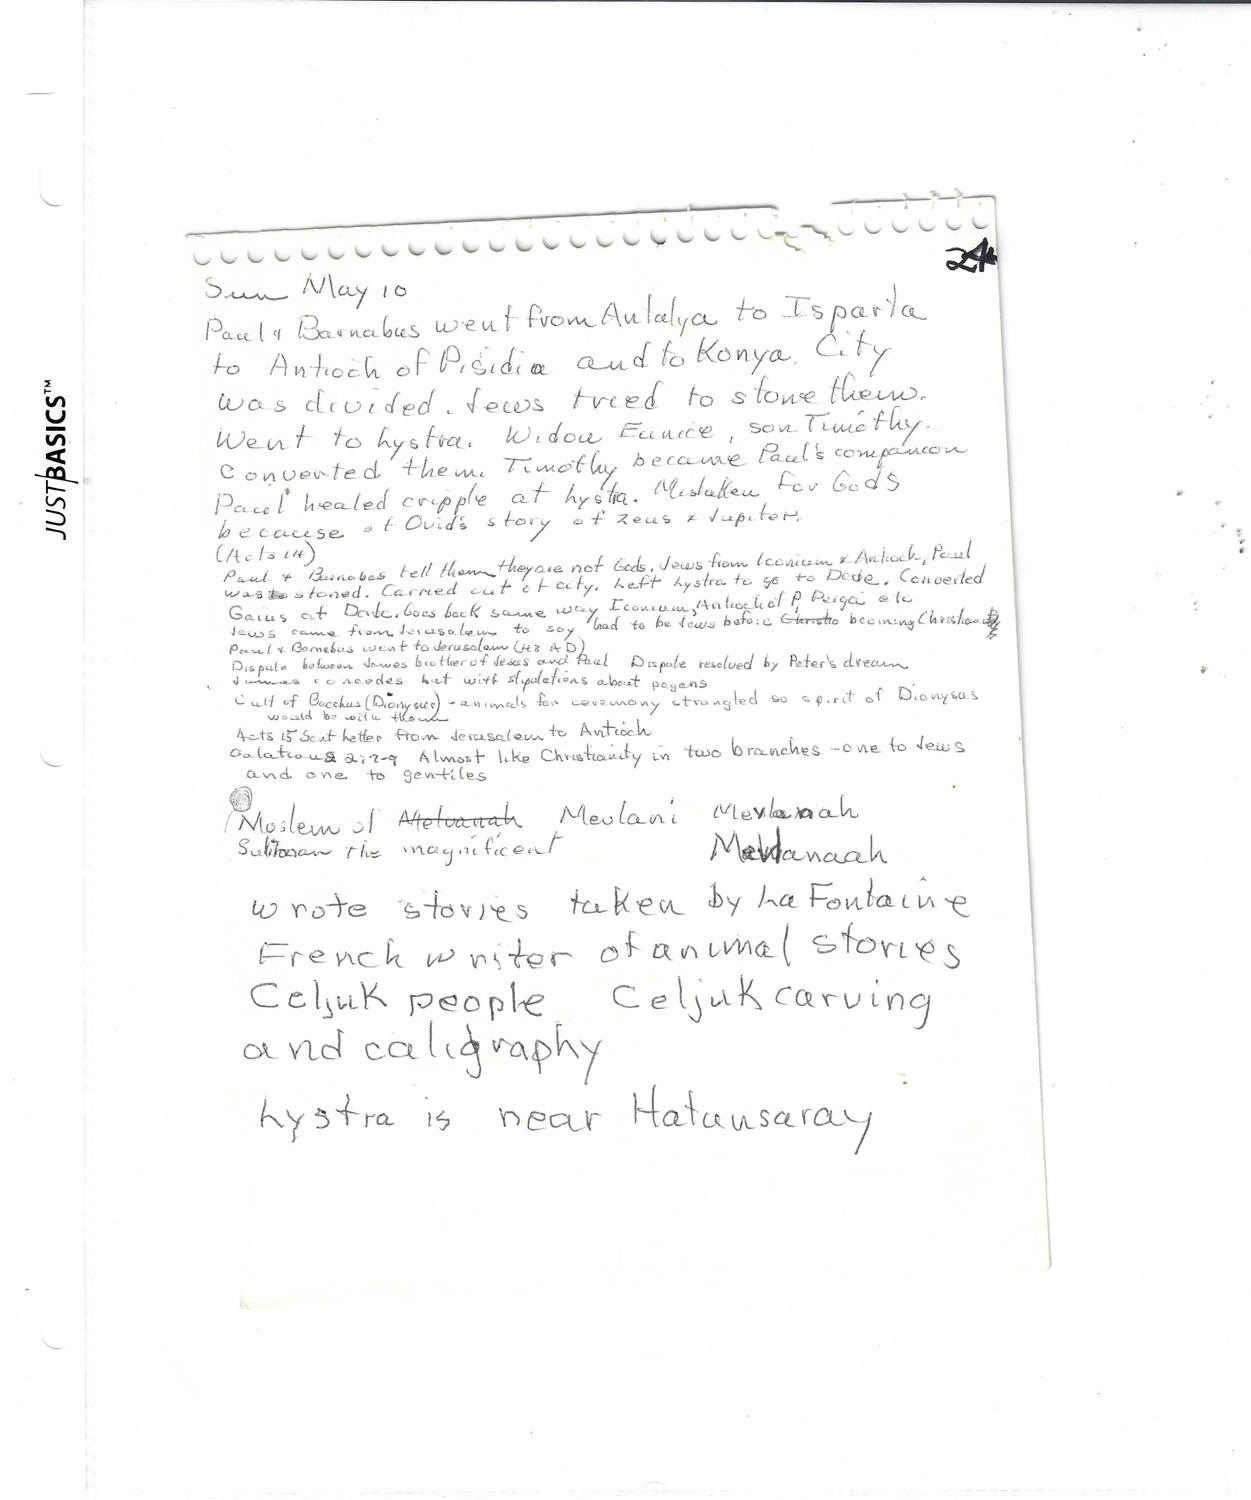 JUST BASICS™
24
Sun May 10
Paul & Barnabus went from Antalya to Isparta
to Antioch of Pisidia and to Konya. City
was divided. Jews tried to stone them.
Went to Lystra. Widow Eunice, son Timothy.
Converted them. Timothy became Paul's companion
Paul healed cripple at Lystra. Mistaken for Gods
because of Ovid's story of Zeus & Jupiter.
(Acts 14)
Paul & Barnabas tell them they are not Gods. Jews from Iconium & Antioch, Paul
was stoned. Carried out of city. Left Lystra to go to Derbe. Converted
Gaius at Derbe. Goes back same way Iconium, Antioch of P, Perga etc
Jews came from Jerusalem to say had to be Jews before Christia becoming Christian
Paul & Barnebus went to Jerusalem (48 AD)
Dispute between James brother of Jesus and Paul Dispute resolved by Peter's dream
James concedes but with stipulations about pagans
Cult of Bacchus (Dionysus) - animals for ceremony strangled so spirit of Dionysus
would be with them
Acts 15 Sent letter from Jerusalem to Antioch
Galatians 2:7-9 Almost like Christianity in two branches - one to Jews
and one to gentiles
Moslem of Mevlani Mevlanah
Suliman the magnificent Mevlanaah
wrote stories taken by La Fontaine
French writer of animal stories
Celjuk people Celjuk carving
and caligraphy
Lystra is near Hatunsaray